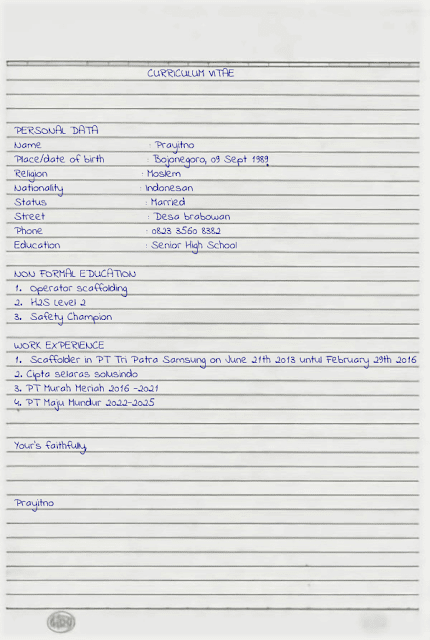 CURRICULUM VITAE
PERSONAL DATA
Name : Prayitno
Place/date of birth : Bojonegoro, 09 Sept 1989
Religion : Moslem
Nationality : Indonesan
Status : Married
Street : Desa brabowan
Phone : 0823 3560 8382
Education : Senior High School
NON FORMAL EDUCATION
1. Operator scaffolding
2. H2S Level 2
3. Safety Champion
WORK EXPERIENCE
1. Scaffolder in PT Tri Patra Samsung on June 21th 2013 untul February 29th 2016
2. Cipta selaras solusindo
3. PT Murah Meriah 2016 -2021
4. PT Maju Mundur 2022-2025
Your's faithfully,
Prayitno